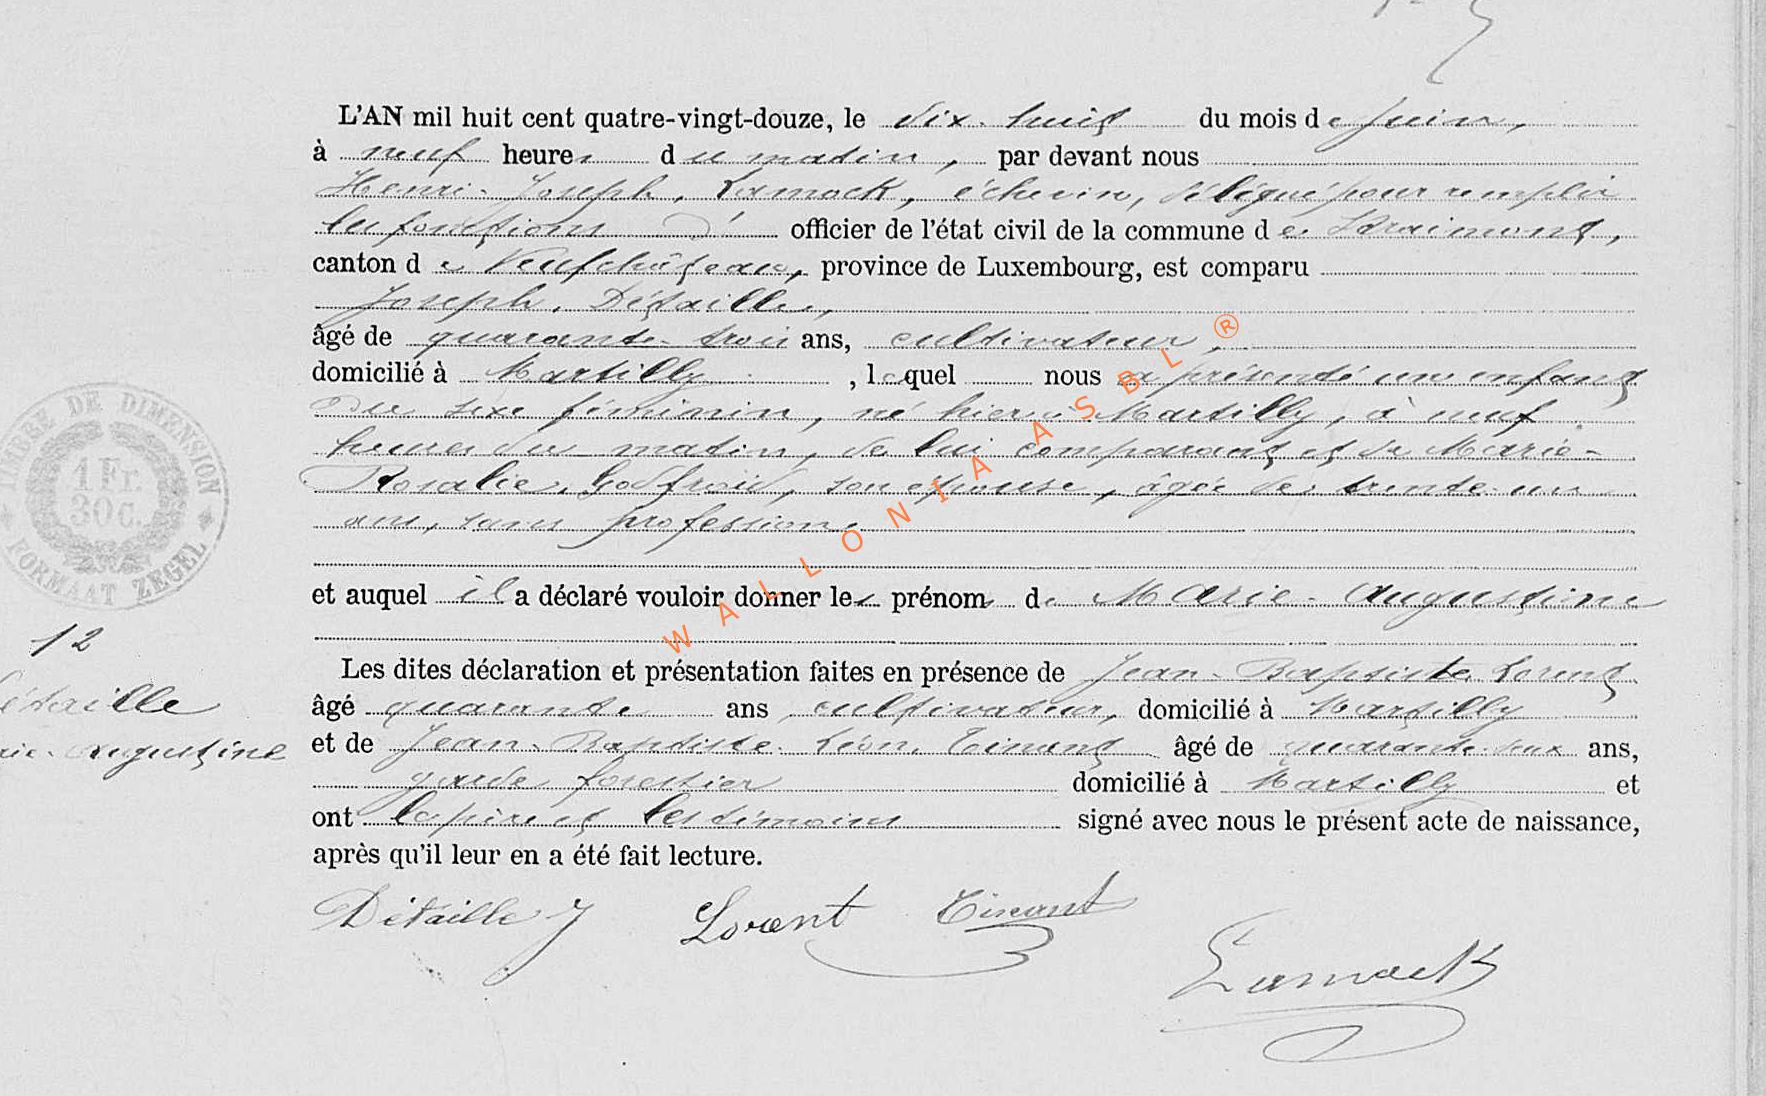 L'AN mil huit cent quatre-vingt-douze, le dix-huit du mois de Juin,
à neuf heures du matin, par devant nous
Henri-Joseph Lamock, échevin, délégué pour remplir
les fonctions d' officier de l'état civil de la commune de Straimont,
canton de Neufchâteau, province de Luxembourg, est comparu
Joseph Détaille,
âgé de quarante-trois ans, cultivateur,
domicilié à Martilly, lequel nous a présenté un enfant
du sexe féminin, né hier à Martilly, à neuf
heures du matin, de lui comparant et de Marie-
Rosalie Godfroid, son épouse, âgée de trente-un
ans, sans profession,
et auquel il a déclaré vouloir donner les prénoms de Marie-Augustine
Les dites déclaration et présentation faites en présence de Jean-Baptiste Lorent
âgé quarante ans cultivateur, domicilié à Martilly
et de Jean-Baptiste-Léon Tinant âgé de quarante-deux ans,
garde forestier domicilié à Martilly et
ont le père et les témoins signé avec nous le présent acte de naissance,
après qu'il leur en a été fait lecture.
Détaille J Lorent Tinant
Lamock
TIMBRE DE DIMENSION
1 Fr.
30 C.
FORMAAT ZEGEL
12
Détaille
Marie-Augustine
WALLONIA ASBL ®